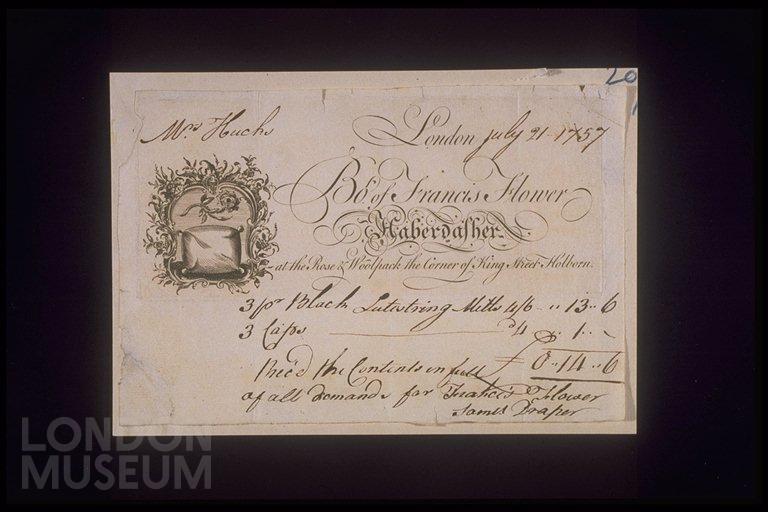 20
Mrs Huchs
London july 21 1757
Bot. of Francis Flower
Haberdasher.
at the Rose & Woolpack the Corner of King Street Holborn.
3 pr Black Lutestring Mitts 4/6 - .. 13 .. 6
3 Caps d4 .. 1 ..
£ 0 .. 14 .. 6
Rec'd the Contents in full
of all demands for Francis Flower
James Draper
LONDON
MUSEUM